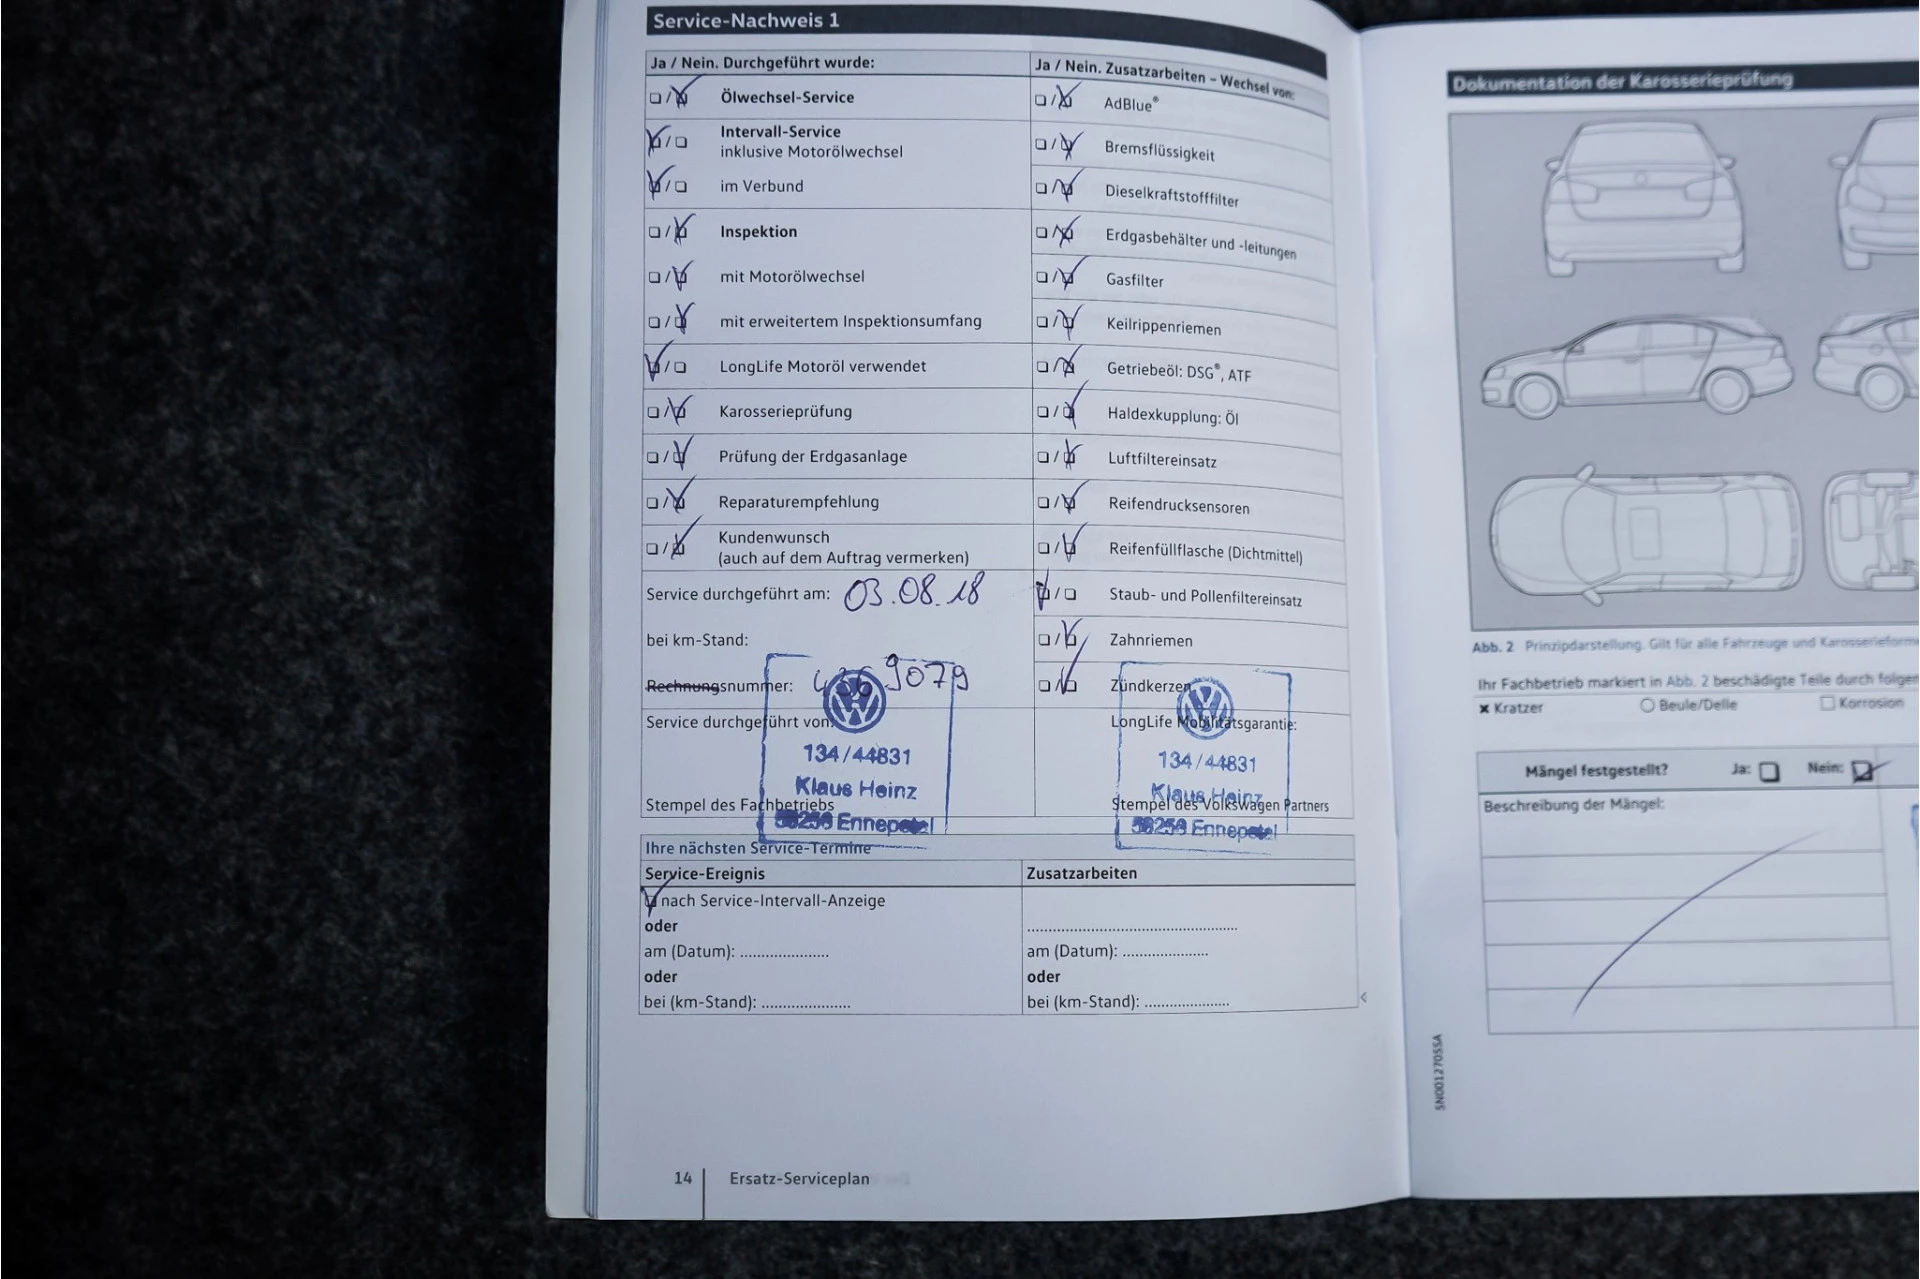 Service-Nachweis 1
Ja / Nein. Durchgeführt wurde:
Ölwechsel-Service
Intervall-Service
inklusive Motorölwechsel
im Verbund
Inspektion
mit Motorölwechsel
mit erweitertem Inspektionsumfang
LongLife Motoröl verwendet
Karosserieprüfung
Prüfung der Erdgasanlage
Reparaturempfehlung
Kundenwunsch
(auch auf dem Auftrag vermerken)
Service durchgeführt am: 03.08.18
bei km-Stand:
Rechnungsnummer: 9079
Service durchgeführt von:
134/44831
Klaus Heinz
Stempel des Fachbetriebs
Ennepetal
Ja / Nein. Zusatzarbeiten – Wechsel von:
AdBlue®
Bremsflüssigkeit
Dieselkraftstofffilter
Erdgasbehälter und -leitungen
Gasfilter
Keilrippenriemen
Getriebeöl: DSG®, ATF
Haldexkupplung: Öl
Luftfiltereinsatz
Reifendrucksensoren
Reifenfüllflasche (Dichtmittel)
Staub- und Pollenfiltereinsatz
Zahnriemen
Zündkerzen
LongLife Mobilitätsgarantie:
134/44831
Klaus Heinz
Stempel des Volkswagen Partners
Ennepetal
Ihre nächsten Service-Termine
Service-Ereignis
nach Service-Intervall-Anzeige
oder
am (Datum): ....................
oder
bei (km-Stand): ....................
Zusatzarbeiten
...............................................
am (Datum): ...................
oder
bei (km-Stand): ...................
14
Ersatz-Serviceplan
Dokumentation der Karosserieprüfung
Abb. 2 Prinzipdarstellung. Gilt für alle Fahrzeuge und
Ihr Fachbetrieb markiert in Abb. 2 beschädigte Teile durch
Kratzer
Beule/Delle
Korrosion
Mängel festgestellt?
Ja:
Nein:
Beschreibung der Mängel:
SN0012705SA